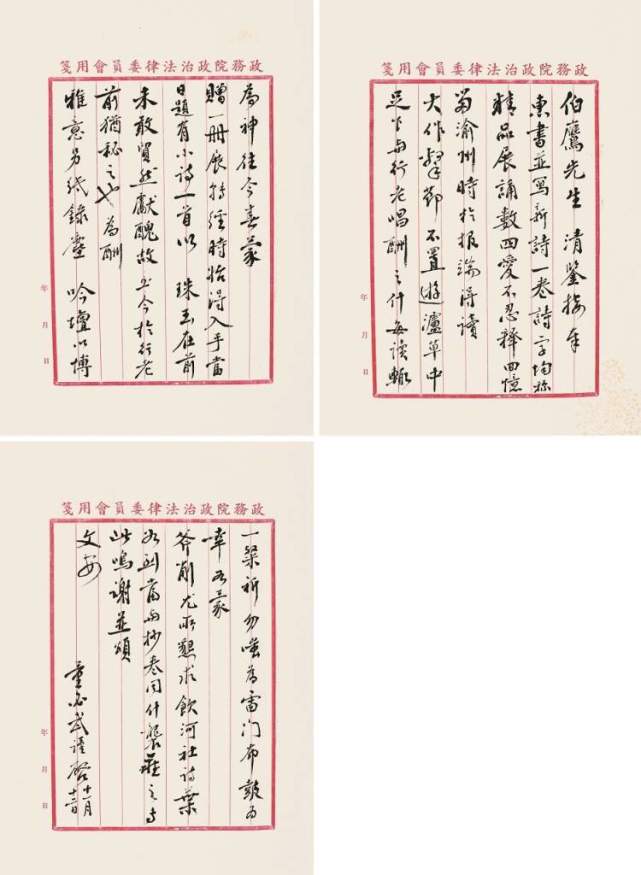 政務院政治法律委員會用箋
伯鷹先生 清鑒接手
惠書並寫新詩一卷詩字均称
精品展誦數四愛不忍釋回憶
寓渝州時於報端得讀
大作擊節不置游瀘草中
足下與行老唱酬之什每讀輒
年 月 日
政務院政治法律委員會用箋
為神往今春蒙
贈一冊展轉經時始得入手當
日題有小詩一首以 珠玉在前
未敢貿然獻醜故至今於行老
前猶秘之也 為酬
雅意另紙錄塵 吟壇以博
年 月 日
政務院政治法律委員會用箋
一粲祈勿嗤為雷門布鼓為
幸如蒙
斧削尤所懇求飲河社詩葉
如到當與抄卷同什襲藏之專
此鳴謝並頌
文安
董必武謹啓 十一月
年 月 日